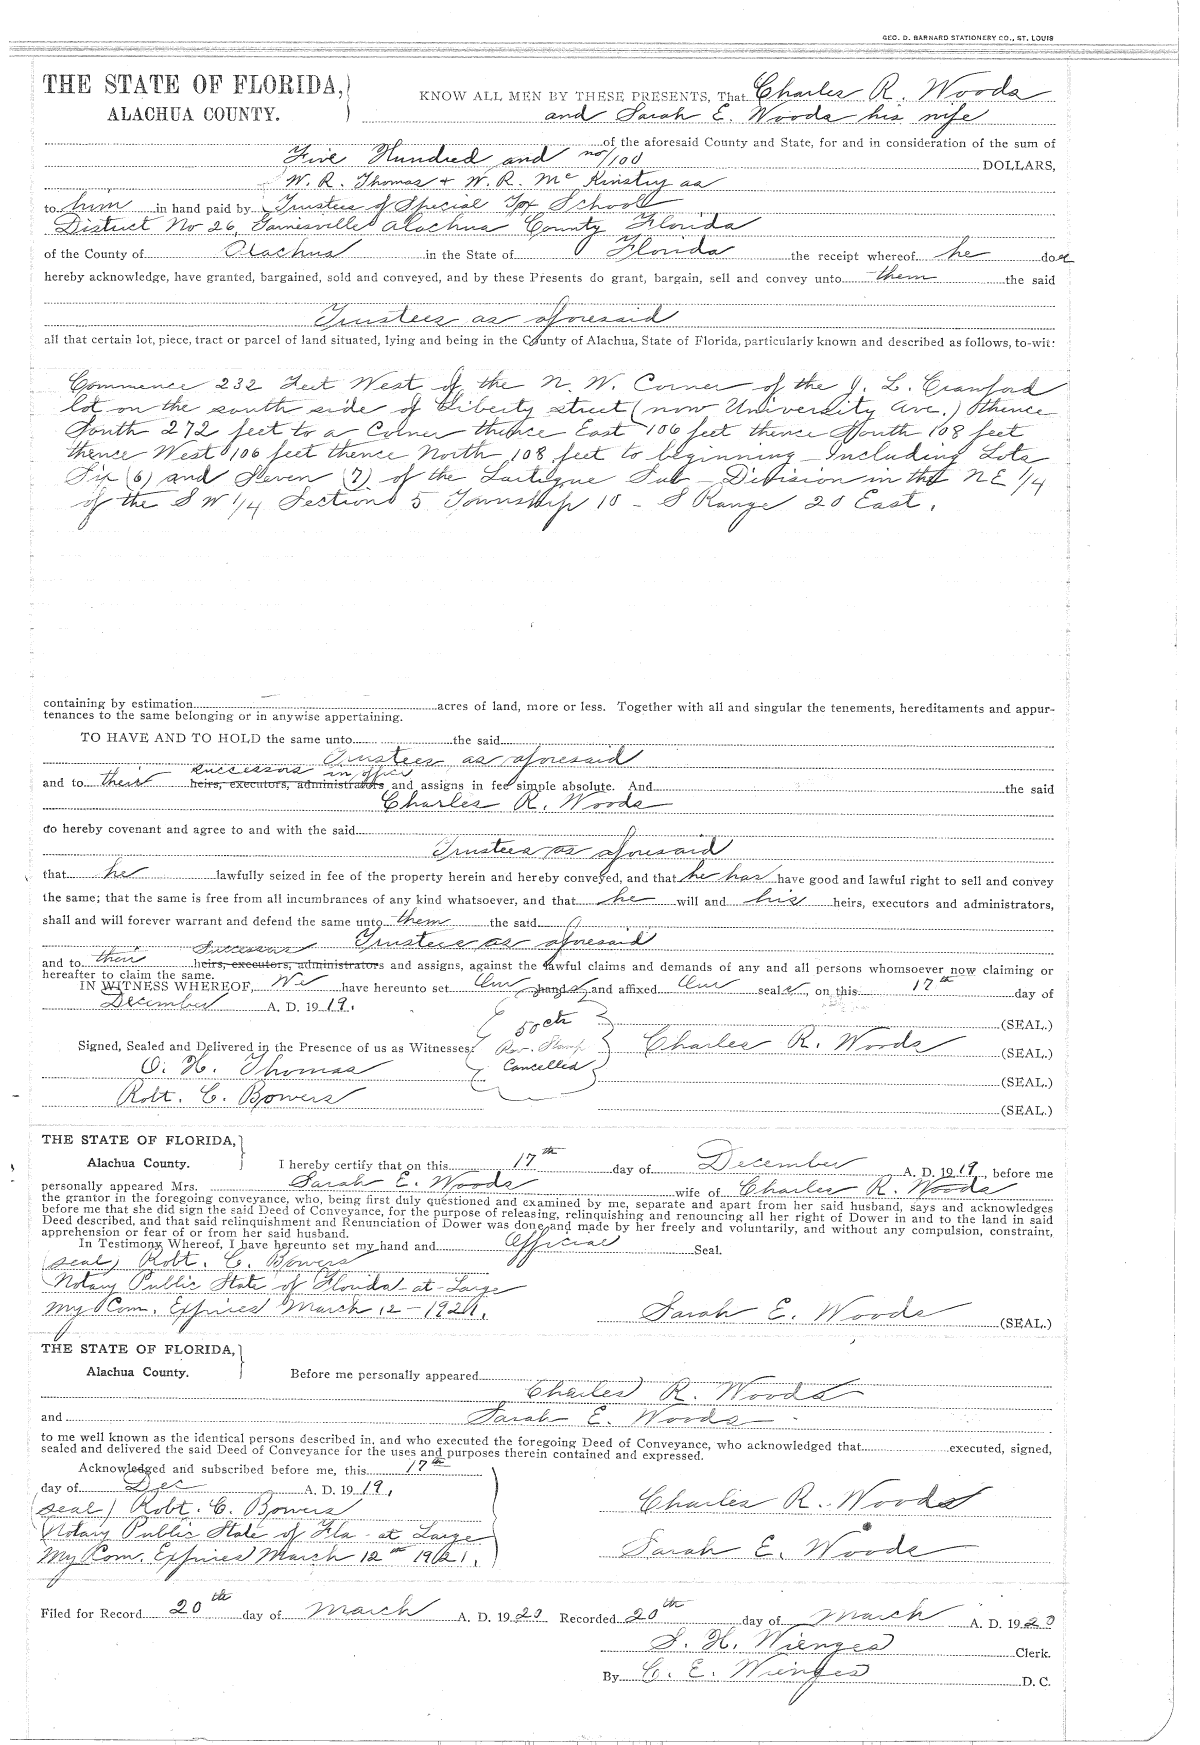 GEO. D. BARNARD STATIONERY CO., ST. LOUIS
THE STATE OF FLORIDA,
ALACHUA COUNTY.
KNOW ALL MEN BY THESE PRESENTS, That Charles R. Woods
and Sarah E. Woods his wife
of the aforesaid County and State, for and in consideration of the sum of
Five Hundred and no/100 DOLLARS,
W. R. Thomas + W. R. McKinstry as
to him in hand paid by Trustees of Special Tax School
District No 26, Gainesville Alachua County Florida
of the County of Alachua in the State of Florida the receipt whereof he does
hereby acknowledge, have granted, bargained, sold and conveyed, and by these Presents do grant, bargain, sell and convey unto them the said
Trustees as aforesaid
all that certain lot, piece, tract or parcel of land situated, lying and being in the County of Alachua, State of Florida, particularly known and described as follows, to-wit:
Commence 232 Feet West of the N. W. Corner of the J. L. Crawford
lot on the south side of Liberty street (now University Ave.) thence
South 272 feet to a Corner thence East 106 feet thence South 108 feet
thence West 106 feet thence North 108 feet to beginning - Including Lots
Six (6) and Seven (7) of the Lartigue Sub - Division in the NE 1/4
of the SW 1/4 Section 5 Township 10 - S Range 20 East.
containing by estimation acres of land, more or less. Together with all and singular the tenements, hereditaments and appur-
tenances to the same belonging or in anywise appertaining.
TO HAVE AND TO HOLD the same unto the said
Trustees as aforesaid
successors in office
and to their heirs, executors, administrators and assigns in fee simple absolute. And the said
Charles R. Woods
do hereby covenant and agree to and with the said
Trustees as aforesaid
that he lawfully seized in fee of the property herein and hereby conveyed, and that he has have good and lawful right to sell and convey
the same; that the same is free from all incumbrances of any kind whatsoever, and that he will and his heirs, executors and administrators,
shall and will forever warrant and defend the same unto them the said
Successors Trustees as aforesaid
and to their heirs, executors, administrators and assigns, against the lawful claims and demands of any and all persons whomsoever now claiming or
hereafter to claim the same.
IN WITNESS WHEREOF, We have hereunto set Our hands and affixed Our seals, on this 17th day of
December A. D. 1919.
50 cts
Rev. Stamp
Cancelled
(SEAL.)
Signed, Sealed and Delivered in the Presence of us as Witnesses: Charles R. Woods (SEAL.)
O. H. Thomas (SEAL.)
Robt. C. Bowers (SEAL.)
THE STATE OF FLORIDA,
Alachua County.
I hereby certify that on this 17th day of December A. D. 1919, before me
personally appeared Mrs. Sarah E. Woods wife of Charles R. Woods
the grantor in the foregoing conveyance, who, being first duly questioned and examined by me, separate and apart from her said husband, says and acknowledges
before me that she did sign the said Deed of Conveyance, for the purpose of releasing, relinquishing and renouncing all her right of Dower in and to the land in said
Deed described, and that said relinquishment and Renunciation of Dower was done and made by her freely and voluntarily, and without any compulsion, constraint,
apprehension or fear of or from her said husband.
In Testimony Whereof, I have hereunto set my hand and Official Seal.
(seal) Robt. C. Bowers
Notary Public State of Florida - at - Large
My Com. Expires March 12 - 1921. Sarah E. Woods (SEAL.)
THE STATE OF FLORIDA,
Alachua County.
Before me personally appeared
Charles R. Woods
and Sarah E. Woods
to me well known as the identical persons described in, and who executed the foregoing Deed of Conveyance, who acknowledged that executed, signed,
sealed and delivered the said Deed of Conveyance for the uses and purposes therein contained and expressed.
Acknowledged and subscribed before me, this 17th
day of Dec A. D. 1919.
(seal) Robt. C. Bowers Charles R. Woods
Notary Public State of Fla - at Large
My Com. Expires March 12th 1921. Sarah E. Woods
Filed for Record 20th day of March A. D. 1920 Recorded 20th day of March A. D. 1920
S. H. Wienges Clerk.
By C. E. Wienges D. C.